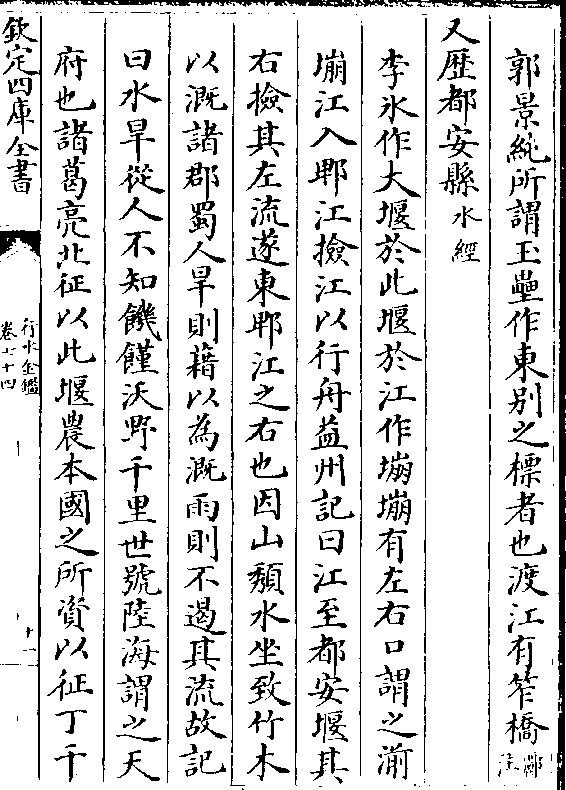 郭景純所謂玉壘作東别之標者也渡江有笮橋酈注
又歴都安縣水經
李氷作大堰於此堰於江作塴塴有左右口謂之湔
塴江入郫江撿江以行舟益州記曰江至都安堰其
右撿其左流遂東郫江之右也因山頽水坐致竹木
以溉諸郡蜀人旱則藉以為溉雨則不遏其流故記
曰水旱從人不知饑饉沃野千里世號陸海謂之天
府也諸葛亮北征以此堰農本國之所資以征丁千
欽定四庫全書
行水金鑑
卷七十四
十一